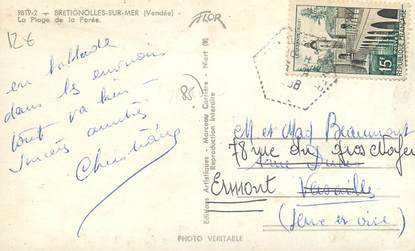 9819-2 - BRETIGNOLLES-SUR-MER (Vendée) -
La Plage de la Parée.
12€
FLOR
15F
en ballade
dans les environs
tout va bien -
Sincères amitiés
85)
Editions Artistiques - Marceau Carrière - Niort (R)
Reproduction Interdite
M et Mad Beaumont
78 rue du Gros Noyer
Ermont
Versailles
(Seine et Oise)
PHOTO VERITABLE